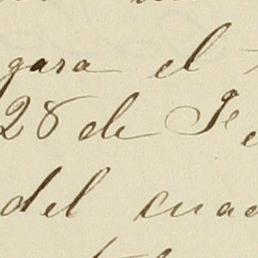 gara el
28 de Fe
del cuad